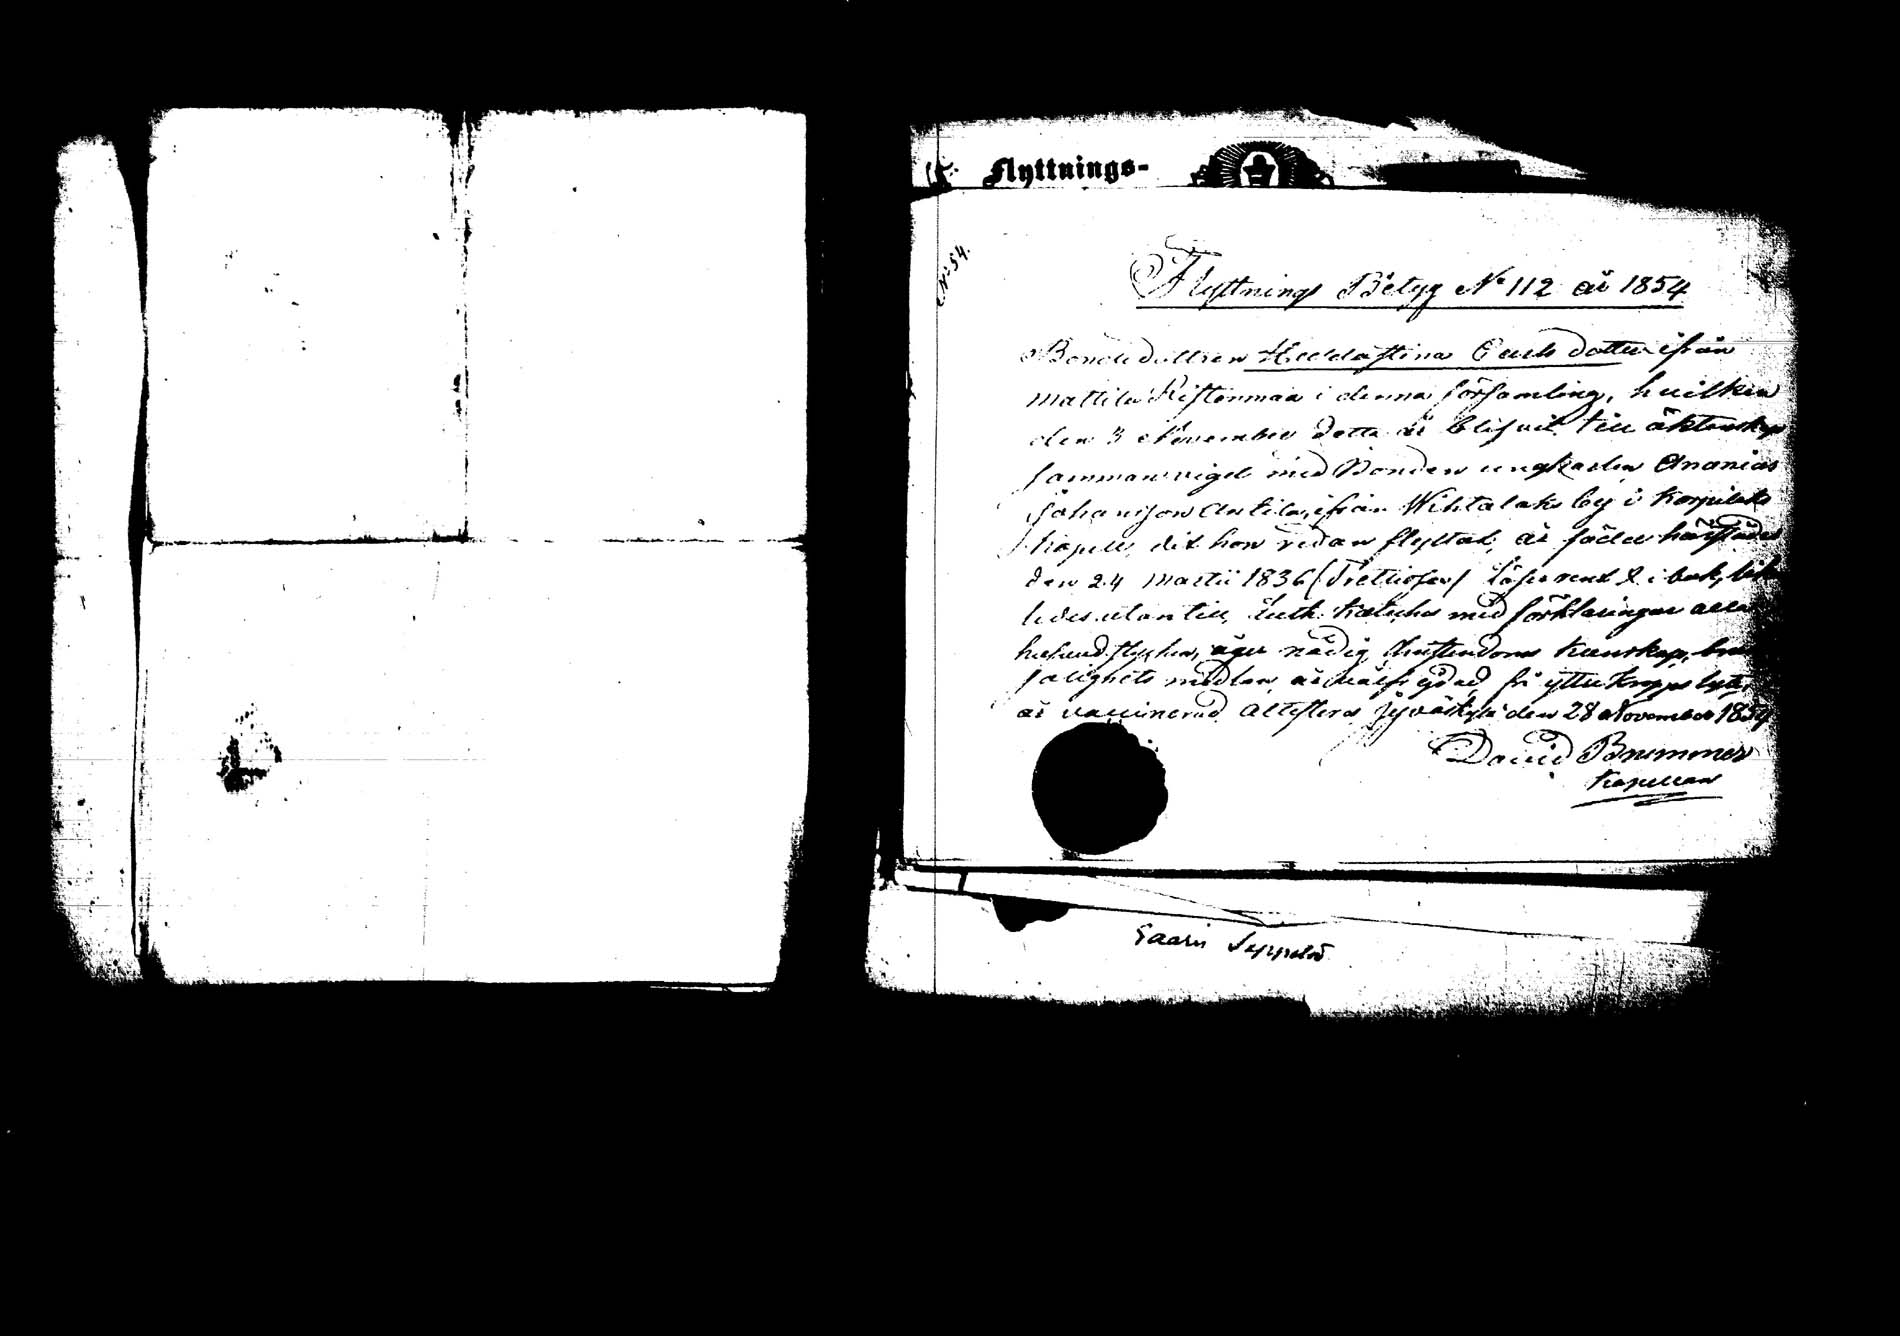 Flyttnings-
No 54.
Flyttnings Betyg No 112 år 1854
Bondedottren Hedda Stina Eriksdotter ifrån
Mattila Ristenmaa i denna församling, hvilken
den 3 November detta år blifvit till äktenskap
sammanvigd med Bonden ungkarlen Ananias
Johansson Antila, ifrån Wihtalaks by i Korpilaks
kapell, dit hon redan flyttat, är född härstädes
den 24 Martii 1836 (Trettiosex) läser rent i bok,
ledes utantill, Luth. Kateches med förklaringar
äger nödig Christendoms kunskap,
salighets medlen, är välfrejdad, fri ytter kropps lyte,
är vaccinerad Attesteras Jyväskylä den 28 November 1854
David Brummer
Kapellan
Saari Seppälä